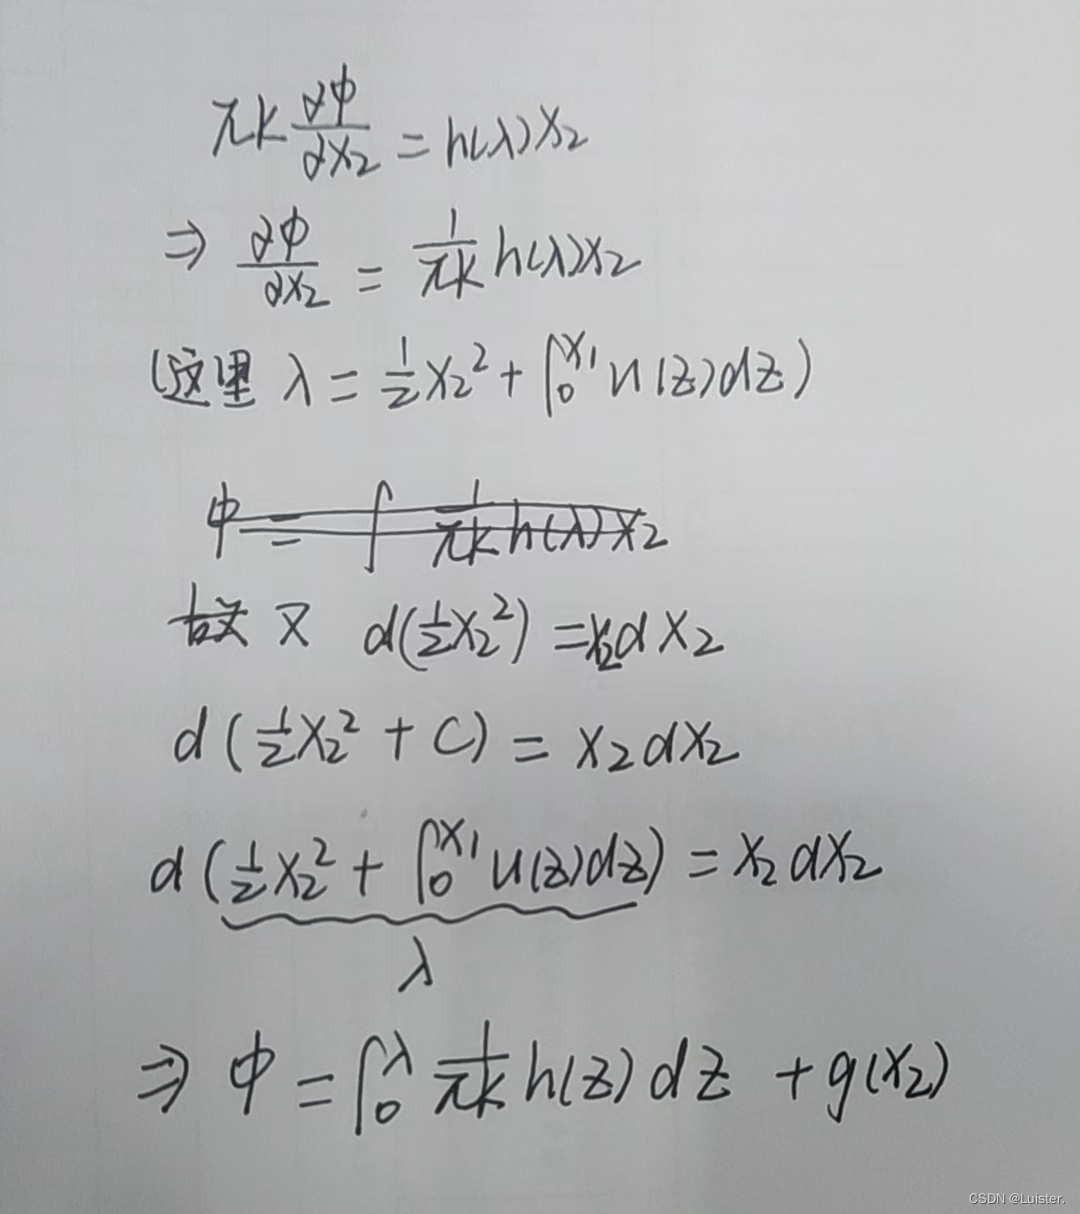 πk ∂φ/∂x₂ = h(λ)x₂
⇒ ∂φ/∂x₂ = 1/πk h(λ)x₂
(这里 λ = ½x₂² + ∫₀^x₁ u(z)dz)
φ = ∫ 1/πk h(λ)x₂
故 又 d(½x₂²) = x₂dx₂
d(½x₂² + c) = x₂dx₂
d(½x₂² + ∫₀^x₁ u(z)dz) = x₂dx₂
λ
⇒ φ = ∫₀^λ 1/πk h(z)dz + g(x₂)
CSDN @Luister.